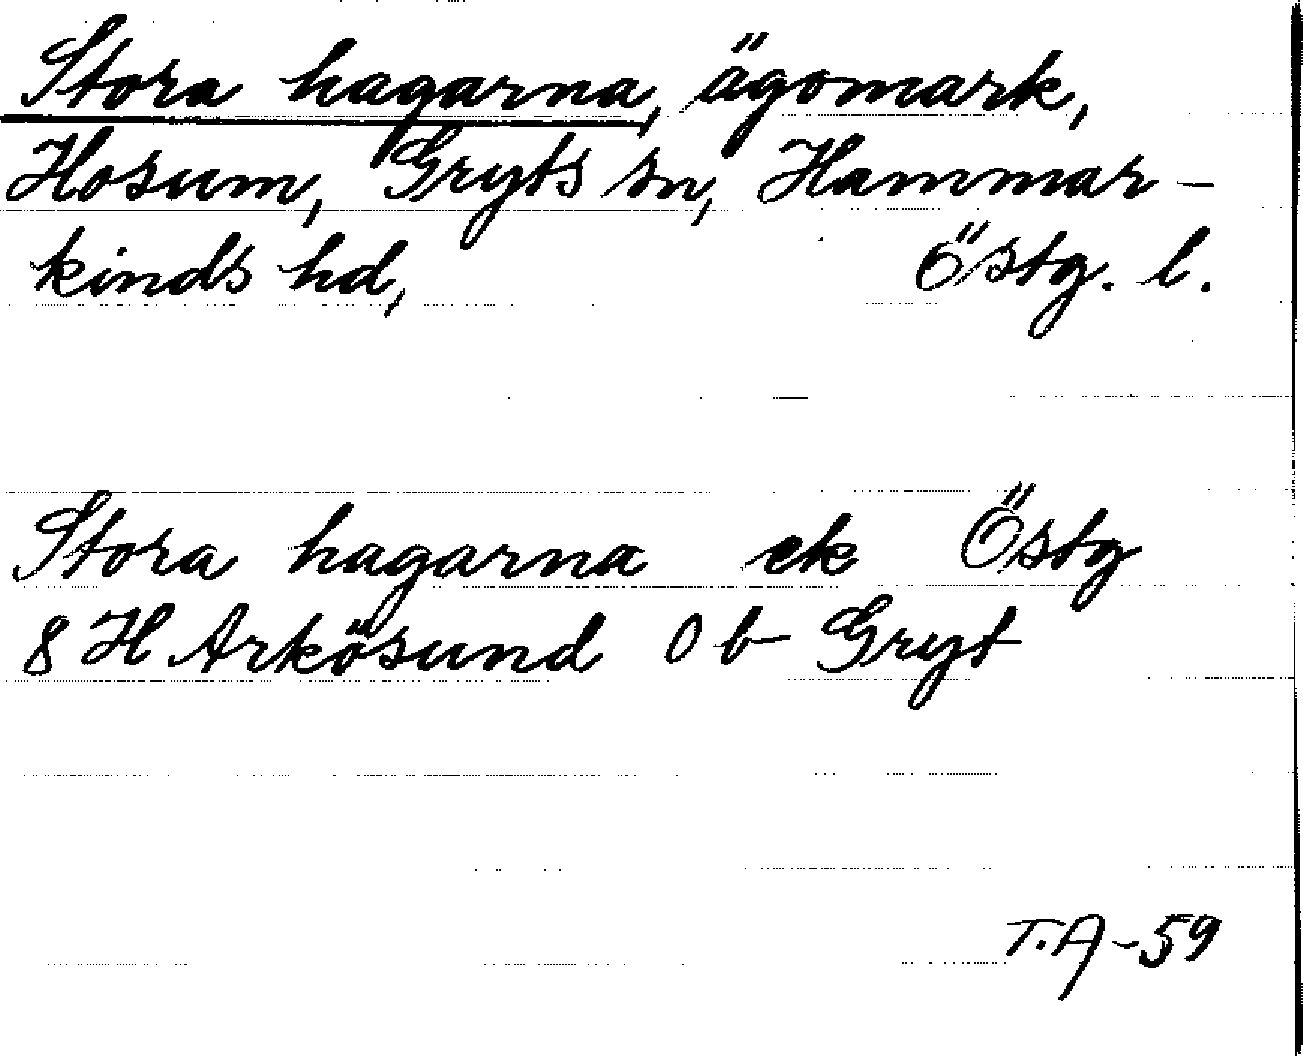 Stora hagarna, ägomark,
Hosum, Gryts sn, Hammar-
kinds hd, Östg. l.
Stora hagarna ek Östg
8 H Arkösund 0 b Gryt
T.A-59